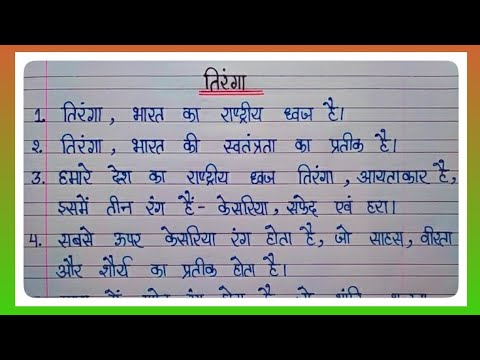 तिरंगा
1. तिरंगा, भारत का राष्ट्रीय ध्वज है।
2. तिरंगा, भारत की स्वतंत्रता का प्रतीक है।
3. हमारे देश का राष्ट्रीय ध्वज तिरंगा, आयताकार है,
इसमें तीन रंग हैं- केसरिया, सफेद एवं हरा।
4. सबसे ऊपर केसरिया रंग होता है, जो साहस, वीरता
और शौर्य का प्रतीक होता है।